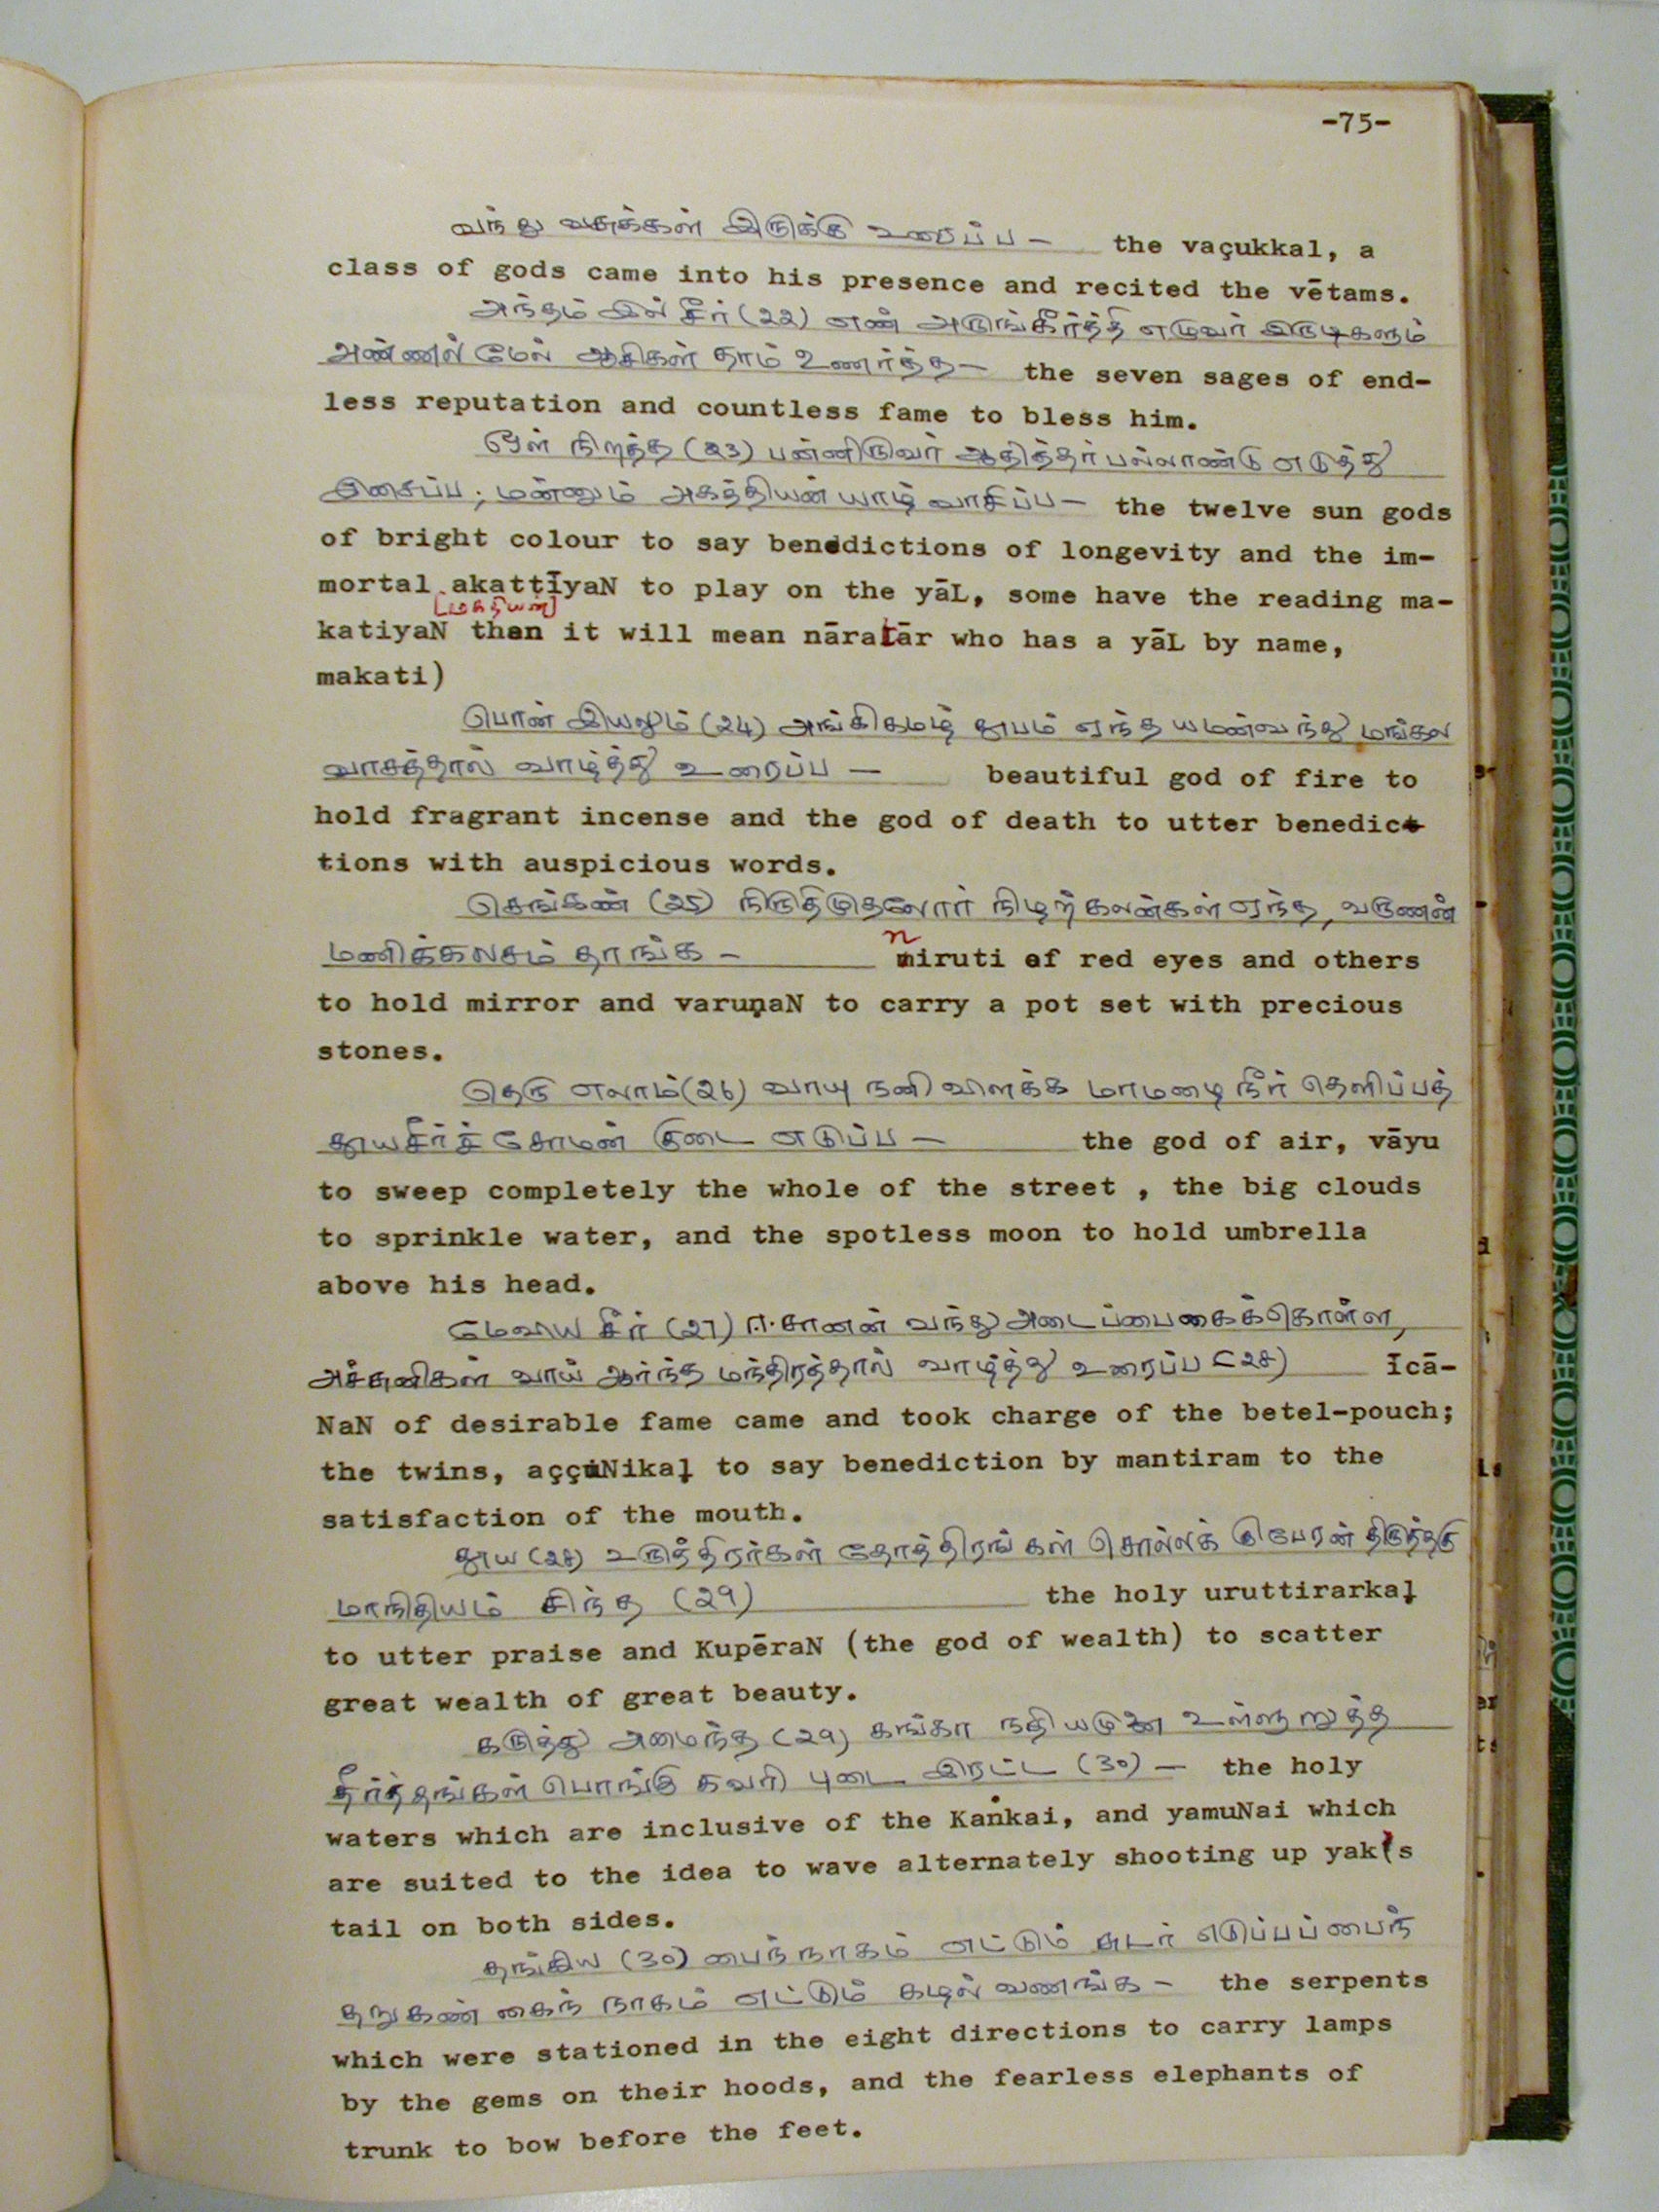 -75-
வந்து வசுக்கள் இருக்கு உரைப்ப — the vaçukkal, a
class of gods came into his presence and recited the vētams.
அந்தம் இல் சீர் (22) எண் அருங்கீர்த்தி எழுவர் இருடிகளும்
அண்ணல் மேல் ஆசிகள் தாம் உணர்த்த — the seven sages of end-
less reputation and countless fame to bless him.
ஒள் நிறத்த (23) பன்னிருவர் ஆதித்தர் பல்லாண்டு எடுத்து
இசைப்ப; மன்னும் அகத்தியன் யாழ் வாசிப்ப — the twelve sun gods
of bright colour to say benedictions of longevity and the im-
mortal akattīyaN to play on the yāL, some have the reading ma-
[மகதியன்]
katiyaN then it will mean nāratār who has a yāL by name,
makati)
பொன் இயலும் (24) அங்கி கமழ் தூபம் ஏந்த யமன்வந்து மங்கல
வாசகத்தால் வாழ்த்து உரைப்ப — beautiful god of fire to
hold fragrant incense and the god of death to utter benedic-
tions with auspicious words.
செங்கண் (25) நிருதிமுதலோர் நிழற் கலன்கள் ஏந்த, வருணன்
மணிக்கலசம் தாங்க — niruti of red eyes and others
to hold mirror and varuṇaN to carry a pot set with precious
stones.
தெரு எலாம் (26) வாயு நனி விளக்க மாமழை நீர் தெளிப்பத்
தூயசீர்ச் சோமன் குடை எடுப்ப — the god of air, vāyu
to sweep completely the whole of the street , the big clouds
to sprinkle water, and the spotless moon to hold umbrella
above his head.
மேவிய சீர் (27) ஈசானன் வந்து அடைப்பை கைக்கொள்ள,
அச்சுனிகள் வாய் ஆர்ந்த மந்திரத்தால் வாழ்த்து உரைப்ப (28) īcā-
NaN of desirable fame came and took charge of the betel-pouch;
the twins, aççuNikaḷ to say benediction by mantiram to the
satisfaction of the mouth.
தூய (28) உருத்திரர்கள் தோத்திரங்கள் சொல்லக் குபேரன் திருத்தகு
மாநிதியம் சிந்த (29) the holy uruttirarkaḷ
to utter praise and KupēraN (the god of wealth) to scatter
great wealth of great beauty.
கருத்து அமைந்த (29) கங்கா நதியமுனை உள்ளுறுத்த
தீர்த்தங்கள் பொங்கு கவரி புடை இரட்ட (30) — the holy
waters which are inclusive of the Kaṅkai, and yamuNai which
are suited to the idea to wave alternately shooting up yak's
tail on both sides.
தங்கிய (30) பைந்நாகம் எட்டும் சுடர் எடுப்பப் பைந்
தறுகண் கைந் நாகம் எட்டும் கழல் வணங்க — the serpents
which were stationed in the eight directions to carry lamps
by the gems on their hoods, and the fearless elephants of
trunk to bow before the feet.